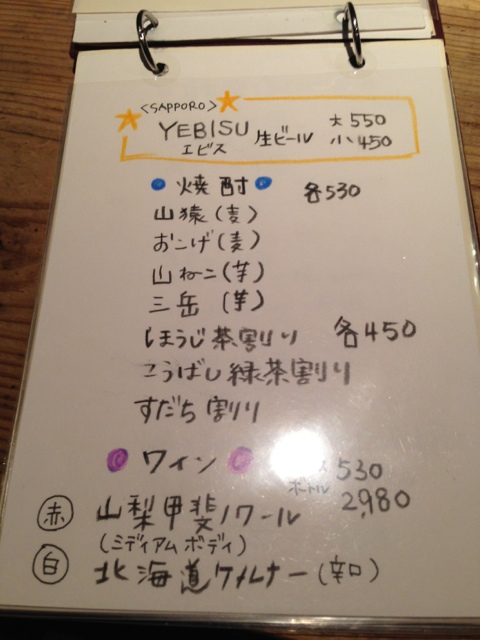 <SAPPORO>
YEBISU 生ビール 大 550
エビス 小 450
焼酎 各530
山猿(麦)
おこげ(麦)
山ねこ(芋)
三岳(芋)
ほうじ茶割り 各450
こうばし緑茶割り
すだち割り
ワイン 530
ボトル 2,980
赤 山梨甲斐ノワール
(ミディアムボディ)
白 北海道ケルナー(辛口)